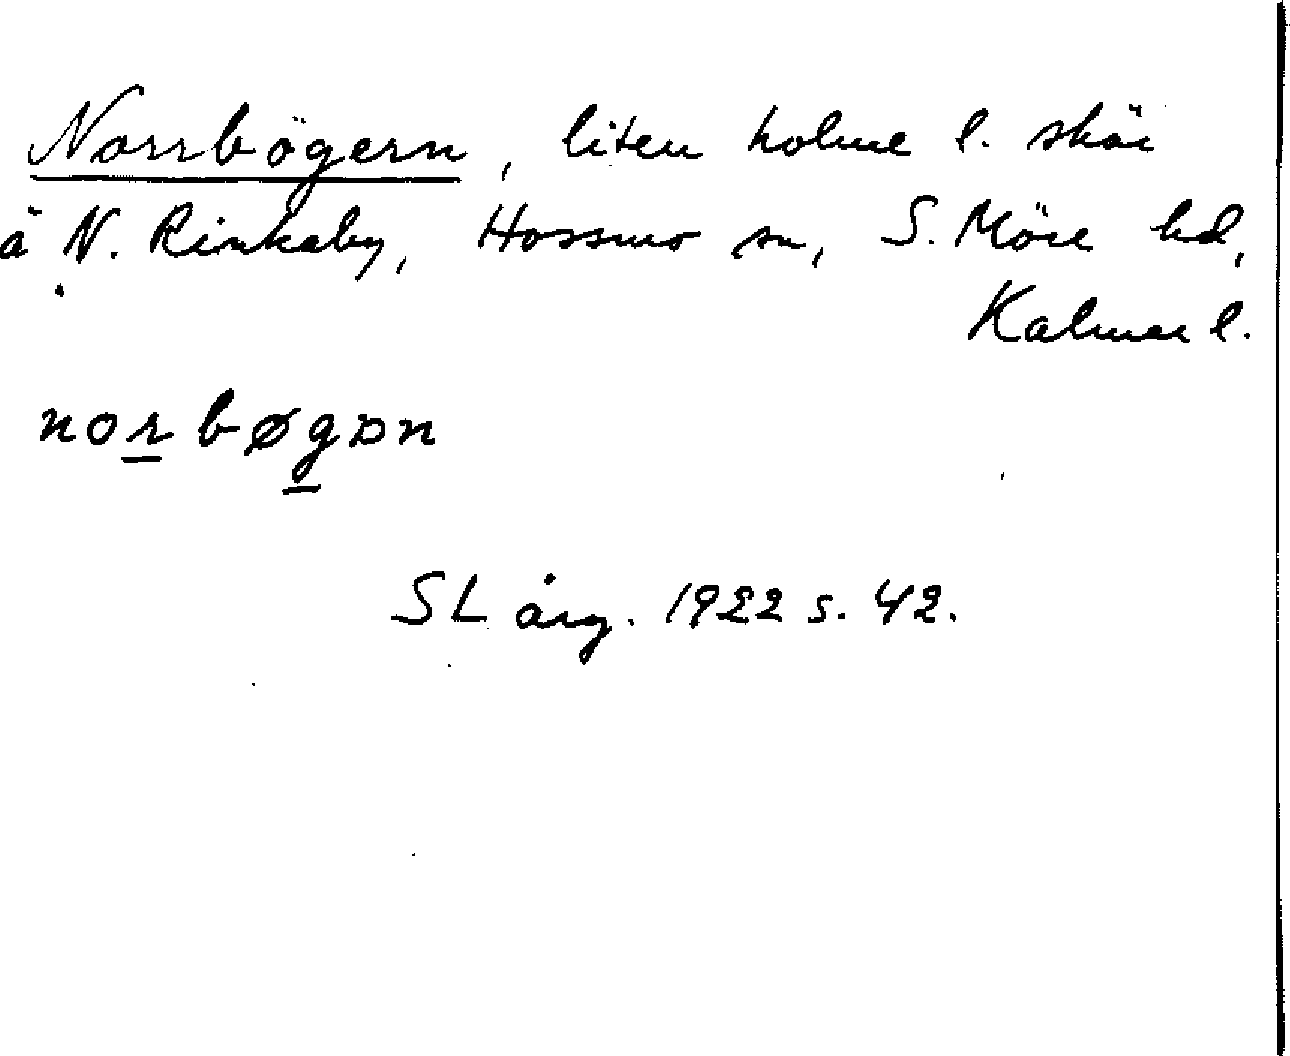 Norrbögern, liten holme l. skär
å N. Rinkaby, Hossmo sn, S. Möre hd,
Kalmar l.
norbøgən
SL årg. 1922 s. 42.